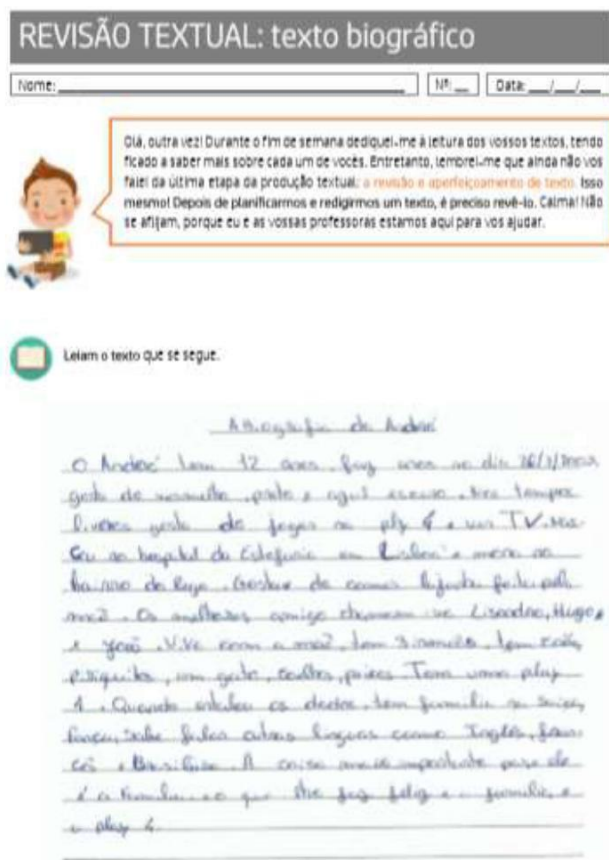 REVISÃO TEXTUAL: texto biográfico
Nome: Nº: Data: / /
Olá, outra vez! Durante o fim de semana dediquei-me à leitura dos vossos textos, tendo
ficado a saber mais sobre cada um de vocês. Entretanto, lembrei-me que ainda não vos
falei da última etapa da produção textual: a revisão e aperfeiçoamento de texto. Isso
mesmo! Depois de planificarmos e redigirmos um texto, é preciso revê-lo. Calma! Não
se aflijam, porque eu e as vossas professoras estamos aqui para vos ajudar.
Leiam o texto que se segue.
A Biografia do André
O André tem 12 anos. faz anos no dia 26/1/
gosta de vermelho, preto e azul escuro. Nos tempos
livres gosta de jogar na play 4 e ver TV. Nas
ceu no hospital da Estefania em Lisboa e mora no
bairro do . Gostava de comer feita pela
maẽ. Os melhores amigo chamam-se Lisandro, Hugo,
e João. Vive com a maẽ, tem 3 irmãos, tem
piriquitos, um gato, peixes. Tem uma play
4. Quando os , tem familia na Suiça,
França, sabe falar outras linguas como Inglês, fran
cês e Brasilense. A coisa mais importante para ele
é a familia e o que lhe faz feliz é a familia, e
a play 4.